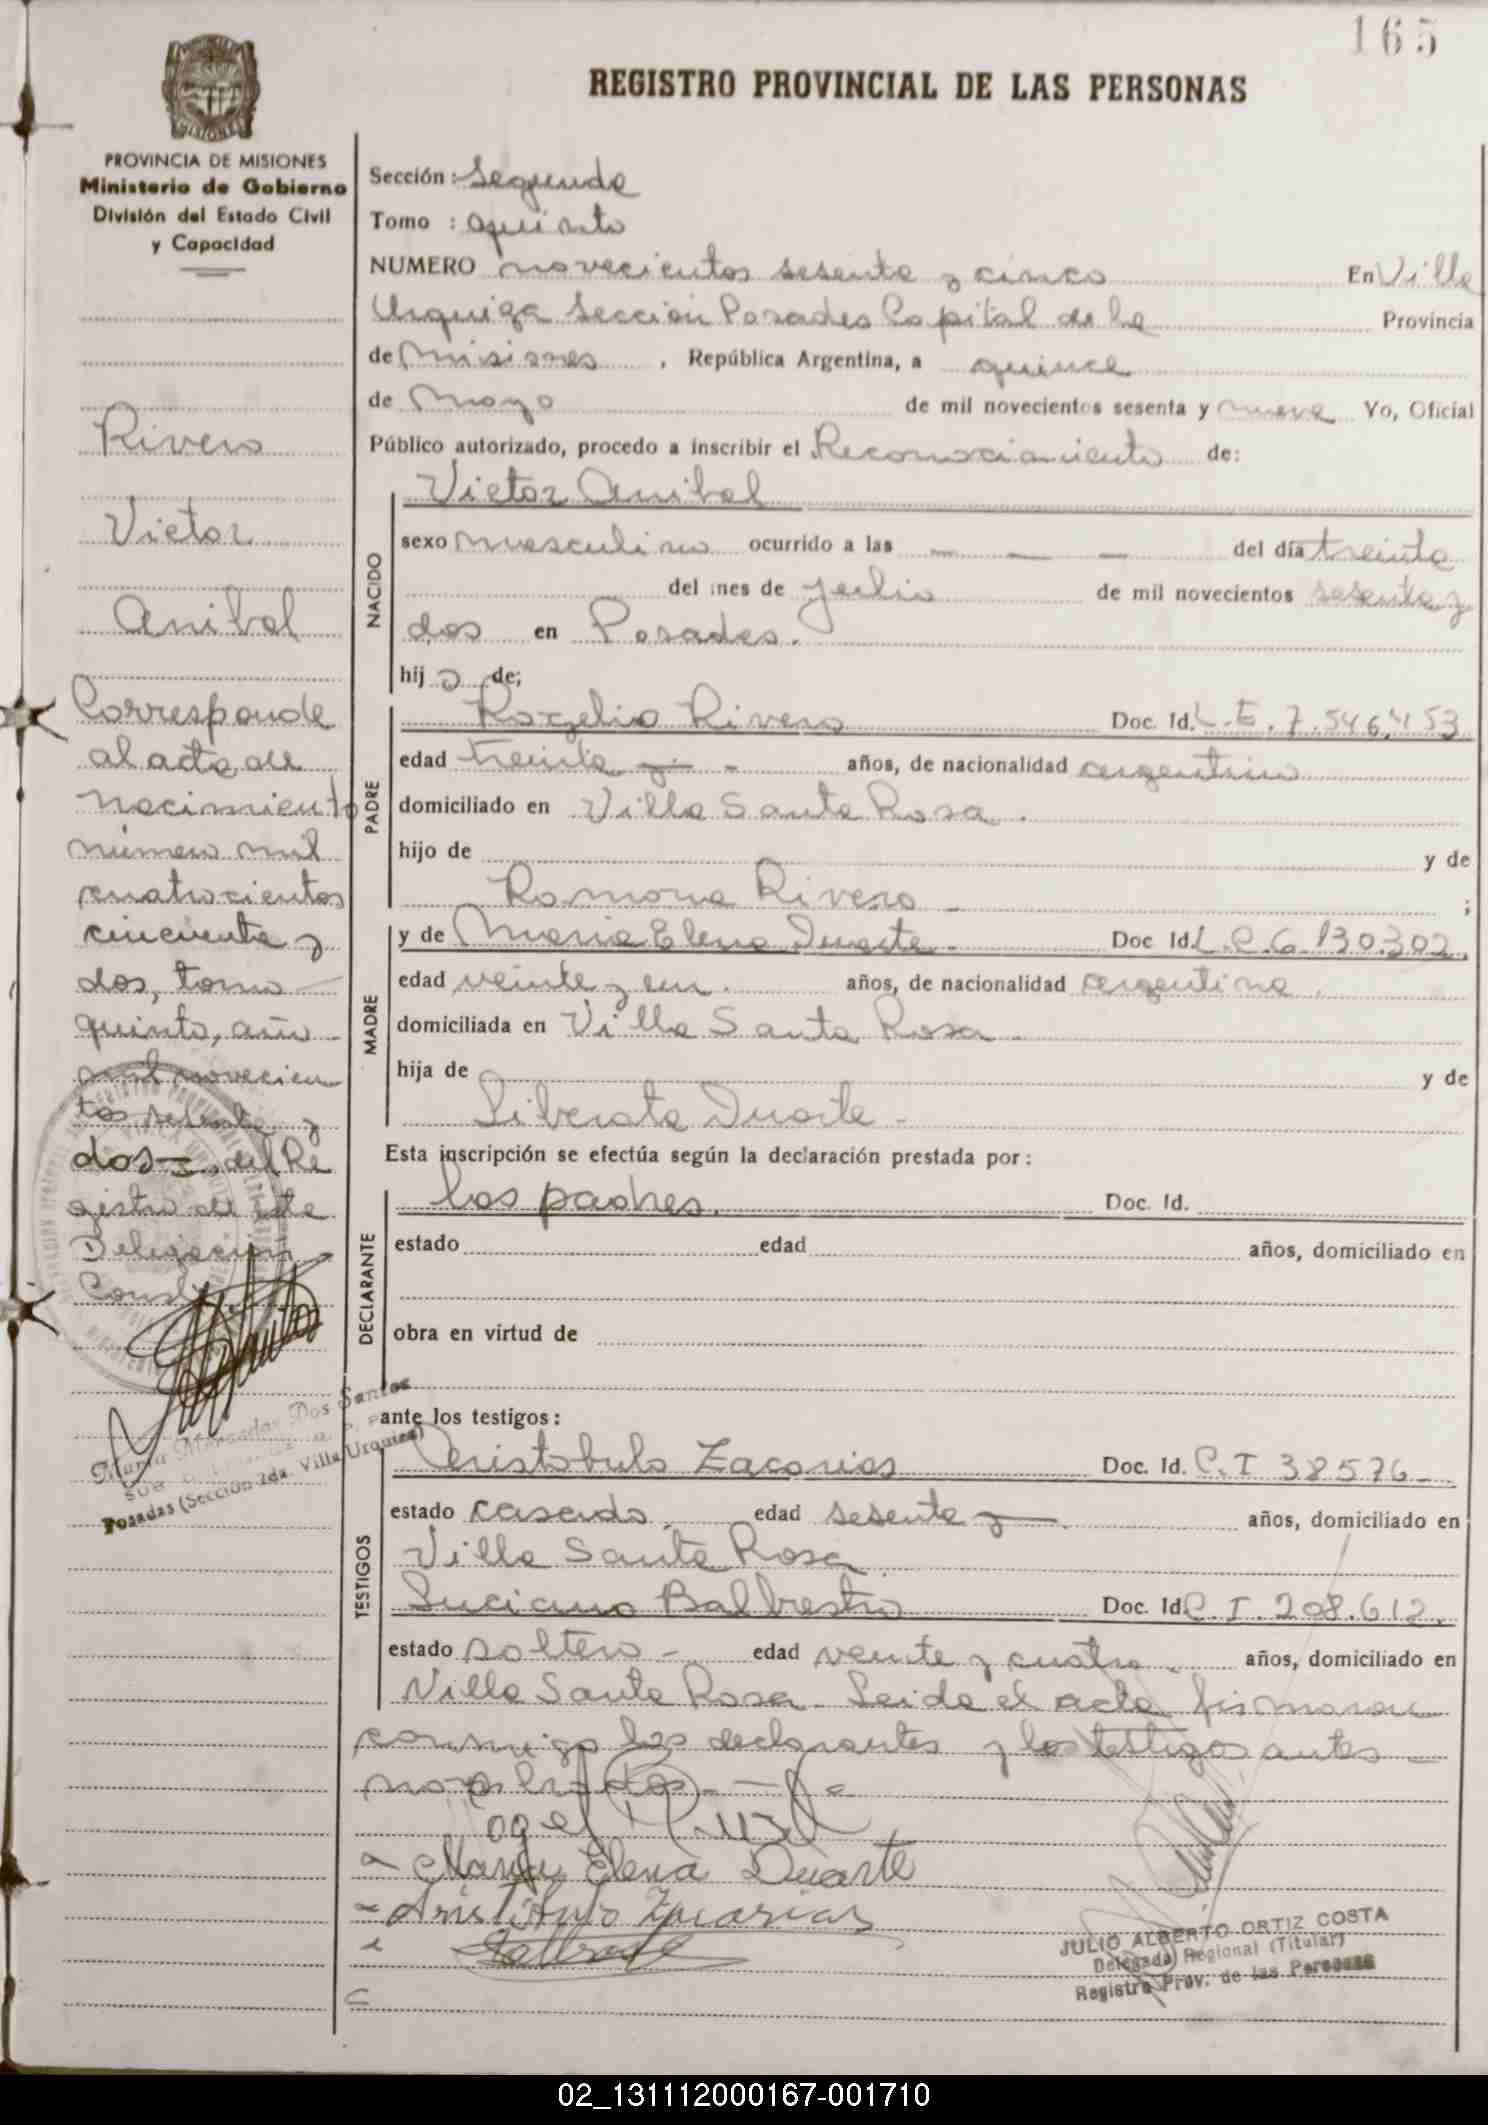 165
REGISTRO PROVINCIAL DE LAS PERSONAS
MISIONES
PROVINCIA DE MISIONES
Ministerio de Gobierno
División del Estado Civil
y Capacidad
Rivero
Victor
Anibal
Corresponde
al acta de
nacimiento
número mil
cuatrocientos
cincuenta y
dos, tomo
quinto, año
mil novecien
tos sesenta y
dos, del Re
gistro de esta
Delegación
Conste
Maria Mercedes Dos Santos
Posadas (Sección 2da. Villa Urquiza)
Sección: Segunda
Tomo : Quinto
NUMERO novecientos sesenta y cinco En Villa
Urquiza Sección Posadas Capital de la Provincia
de Misiones, República Argentina, a quince
de Mayo de mil novecientos sesenta y nueve Yo, Oficial
Público autorizado, procedo a inscribir el Reconocimiento de:
NACIDO
Victor Anibal
sexo masculino ocurrido a las — — — del día treinta
del mes de Julio de mil novecientos sesenta y
dos en Posadas.
hijo de;
PADRE
Rogelio Rivero Doc. Id. L.E. 7.546.453
edad treinta y — - años, de nacionalidad argentino
domiciliado en Villa Santa Rosa.
hijo de y de
Ramona Rivero - ;
MADRE
y de Maria Elena Duarte - Doc Id. L.C. 6.130.302.
edad veinte y un. años, de nacionalidad argentina.
domiciliada en Villa Santa Rosa.
hija de y de
Liberata Duarte -
Esta inscripción se efectúa según la declaración prestada por:
DECLARANTE
los padres. Doc. Id.
estado edad años, domiciliado en
obra en virtud de
ante los testigos:
TESTIGOS
Aristobulo Zacarias Doc. Id. C.I 38576 -
estado casado. edad sesenta y — años, domiciliado en
Villa Santa Rosa
Luciano Balbestro Doc. Id. C.I. 208.612.
estado soltero - edad veinte y cuatro - años, domiciliado en
Villa Santa Rosa. Leida el acta firmaron
conmigo los declarantes y los testigos antes
nombrados. —
Maria Elena Duarte
Aristobulo Zacarias
JULIO ALBERTO ORTIZ COSTA
Delegado Regional (Titular)
Registro Prov. de las Personas
02_131112000167-001710